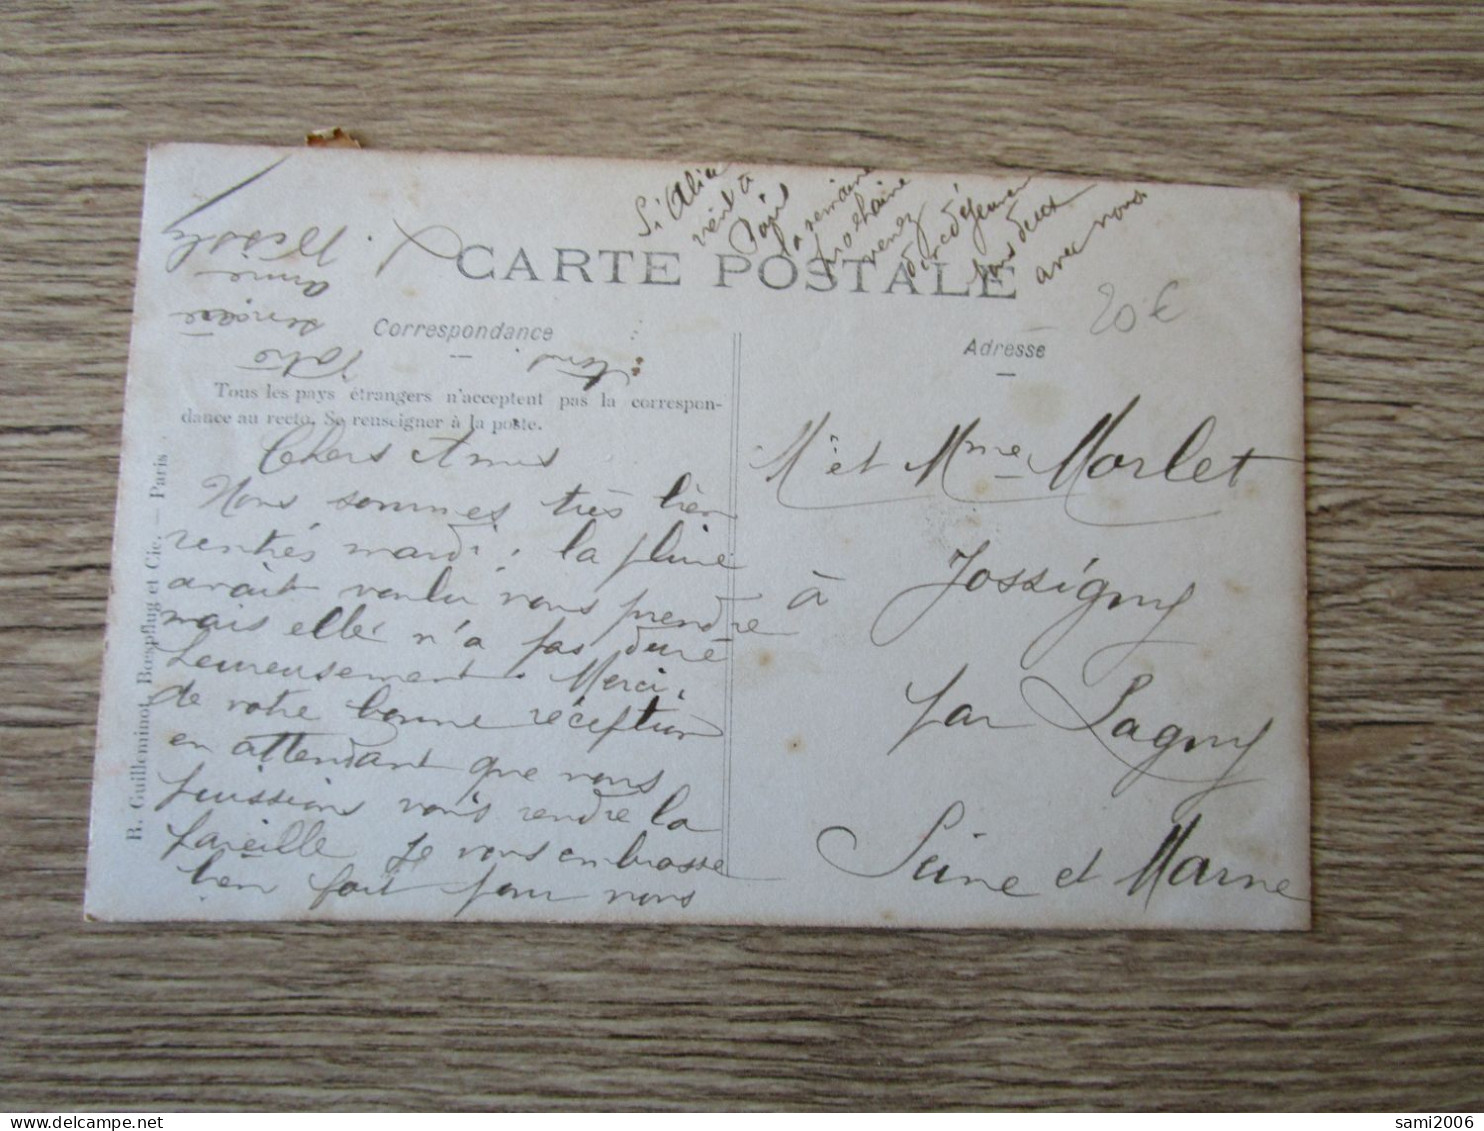 Si Alice
vient à
la semaine
prochaine
venez
donc déjeuner
tous deux
avec nous
CARTE POSTALE
20 €
Correspondance
Adresse
tous
votre
amie
Tous les pays étrangers n'acceptent pas la correspon-
dance au recto. Se renseigner à la poste.
Chers Amis
Nous sommes très bien
rentrés mardi, la pluie
avait voulu nous prendre
mais elle n'a pas duré
heureusement. Merci,
de votre bonne réception
en attendant que nous
puissions vous rendre la
pareille je vous embrasse
bien fort pour nous
Mr et Mme Morlet
à Jossigny
par Lagny
Seine et Marne
R. Guilleminot, Bœspflug et Cie. — Paris
sami2006